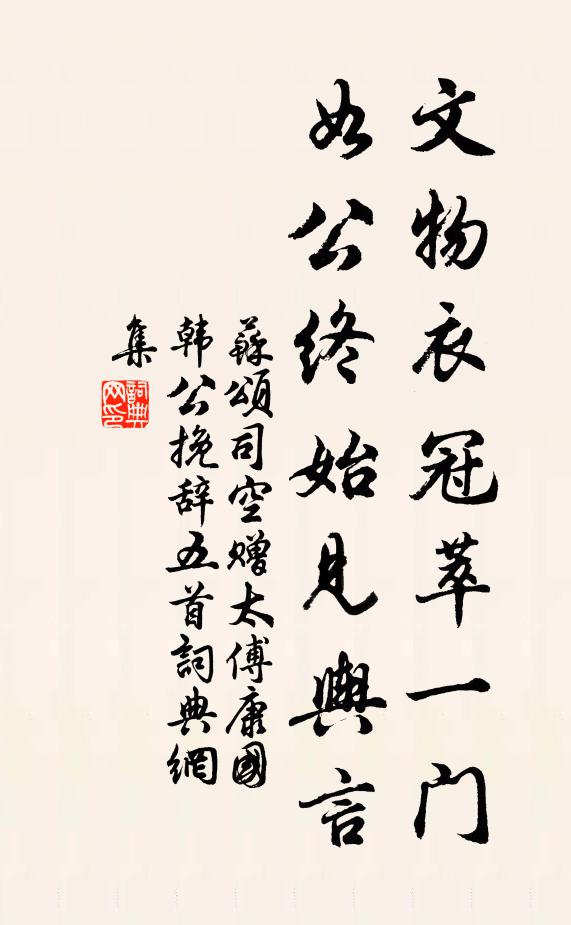 文物衣冠萃一门
如公终始见舆言
蘇頌司空赠太傅康國
韩公挽辞五首詞典網
集
詞典网印